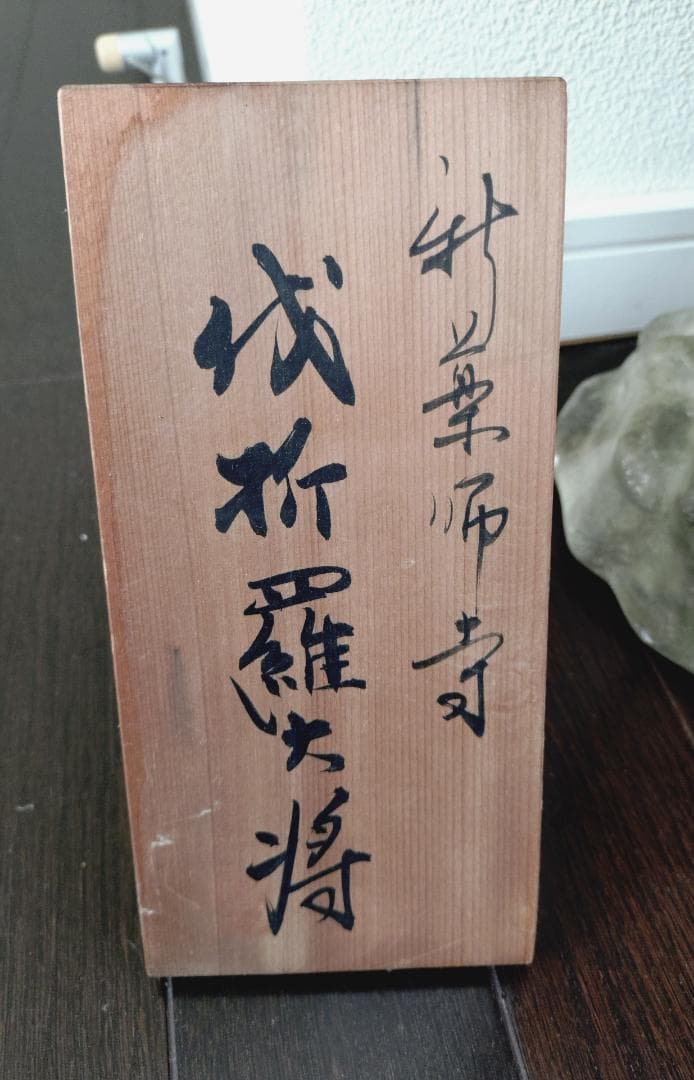 新薬師寺
伐折羅大将